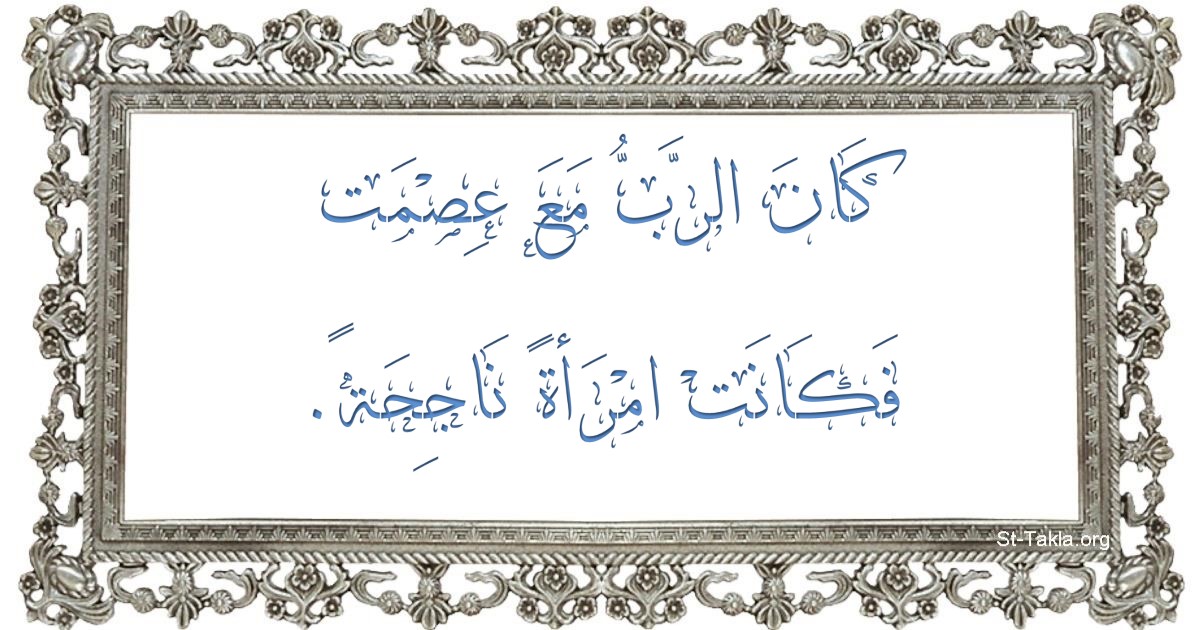 كَانَ الرَّبُّ مَعَ عِصْمَت
فَكَانَتْ امْرَأَةً نَاجِحَةً.
St-Takla.org